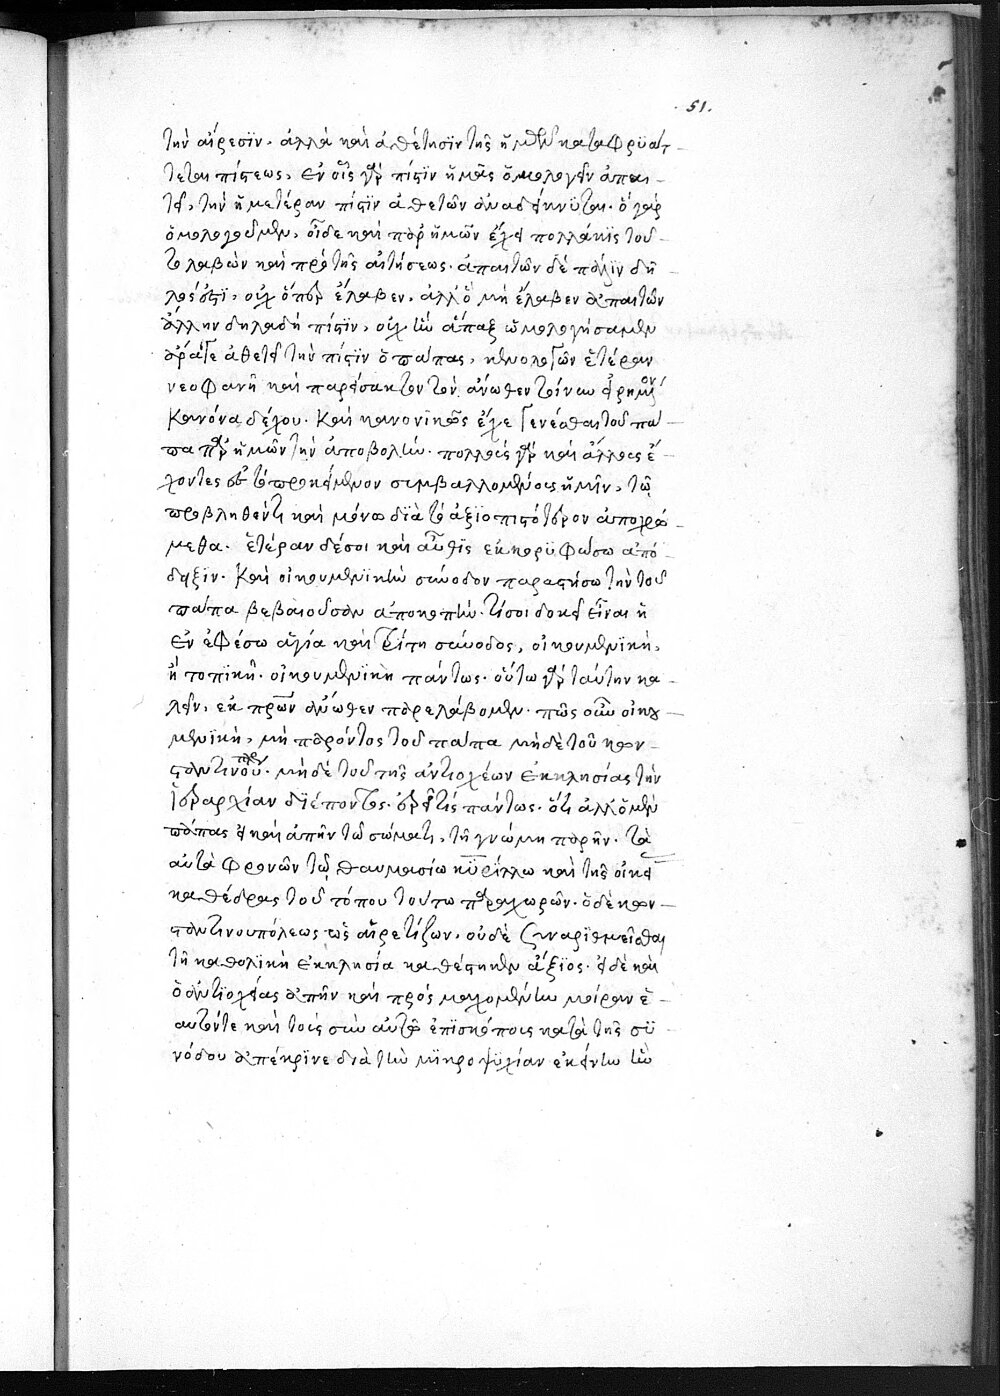 51.
τὴν αἵρεσϊν. ἀλλὰ καὶ ἀθέτησϊν τῆς ἡμῶν καταφρϋάτ-
τεται πίστεως, ἐν οἷς γὰρ πίστϊν ἡμᾶς ὁμολογεῖν ἀπαι-
τεῖ, τὴν ἡμετέραν πίστϊν ἀθετῶν ἀναδείκνϋται. ὁ γὰρ
ὁμολογοῦμεν, οἶδε καὶ παρ' ἡμῶν ἔχει πολλάκϊς τοῦ-
το λαβὼν καὶ πρὸ τῆς αἰτήσεως. ἀπαιτῶν δὲ πάλϊν δῆ-
λος ἐστϊ, οὐχ ὅπερ ἔλαβεν, ἀλλ' ὃ μὴ ἔλαβεν ἀπαιτῶν
ἄλλην δηλαδὴ πίστϊν, οὐχ ἣν ἅπαξ ὡμολογήσαμεν
ἀθετεῖ τὴν πίστϊν ὁ πάπας, κενολογῶν ἑτέραν
νεοφανῆ καὶ παρείσακτον τὸν ἄνωθεν τοίνυν εἰρημένον
κανόνα δέχου. καὶ κανονϊκῶς ἔχε γενέσθαι τοῦ πά-
πα παρ' ἡμῶν τὴν ἀποβολήν. πολλοῖς γὰρ καὶ ἄλλοις ἔ-
χοντες εἰς τὸ προκείμενον συμβαλλομένοις ἡμῖν, τῷ
προβληθέντι καὶ μόνῳ δϊὰ τὸ ἀξϊοπιστότερον ἀποχρώ-
μεθα. ἑτέραν δέ σοι καὶ αὖθϊς ἐκκορϋφώσω ἀπό-
δειξϊν. καὶ οἰκουμενϊκὴν σύνοδον παραστήσω τὴν τοῦ
πάπα βεβαιοῦσαν ἀποκοπήν. τί σοι δοκεῖ εἶναι ἡ
ἐν ἐφέσω ἁγία καὶ τρίτη σύνοδος, οἰκουμενϊκὴ,
ἢ τοπϊκή. οἰκουμενϊκὴ πάντως. οὕτω γὰρ ταύτην κα-
λεῖν, ἐκ πρῶν ἄνωθεν παρελάβομεν. πῶς οὖν οἰκου-
μενϊκὴ, μὴ παρόντος τοῦ πάπα μηδὲ τοῦ κων-
σταντινου πρ. μηδὲ τοῦ τῆς ἀντιοχέων ἐκκλησίας τὴν
ἱεραρχίαν δϊέποντος. ἐρεῖ τίς πάντως. ὅτι ἀλλ' ὁ μὲν
πάπας εἰ καὶ ἀπῆν τῷ σώματι, τῇ γνώμῃ παρῆν. τὰ
αὐτὰ φρονῶν τῷ θαυμασίω κϋρίλλω καὶ τῆς οἰκεί
καθέδρας τοῦ τόπου τούτω παραχωρῶν. ὁ δὲ κων-
σταντινουπόλεως ὡς αἱρετίζων, οὐδὲ συναρϊθμεῖσθαι
τῇ καθολϊκῇ ἐκκλησία καθέστηκεν ἄξϊος. εἰ δὲ καὶ
ὁ ἀντϊοχείας ἀπῆν καὶ πρὸς μαχομένην μοῖραν ἑ-
αυτόν τε καὶ τοὺς σὺν αὐτῷ ἐπϊσκόποις κατὰ τῆς σϋ-
νόδου ἀπέκρϊνε διὰ τὴν μϊκροψϋχίαν ἐκείνην ἣν